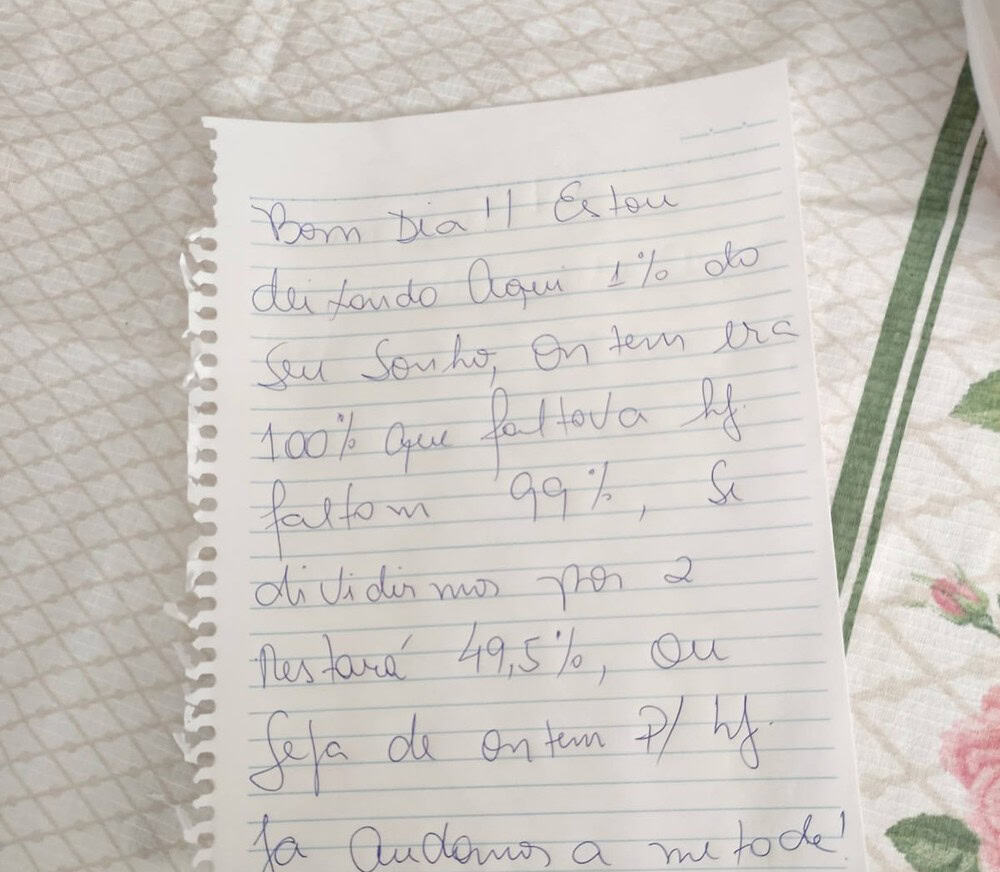 Bom Dia!! Estou
deixando Aqui 1% do
seu Sonho, Ontem era
100% que faltava hj.
faltam 99%, se
dividirmos por 2
Restará 49,5%, ou
seja de ontem p/ hj.
Ja andamos a metade!